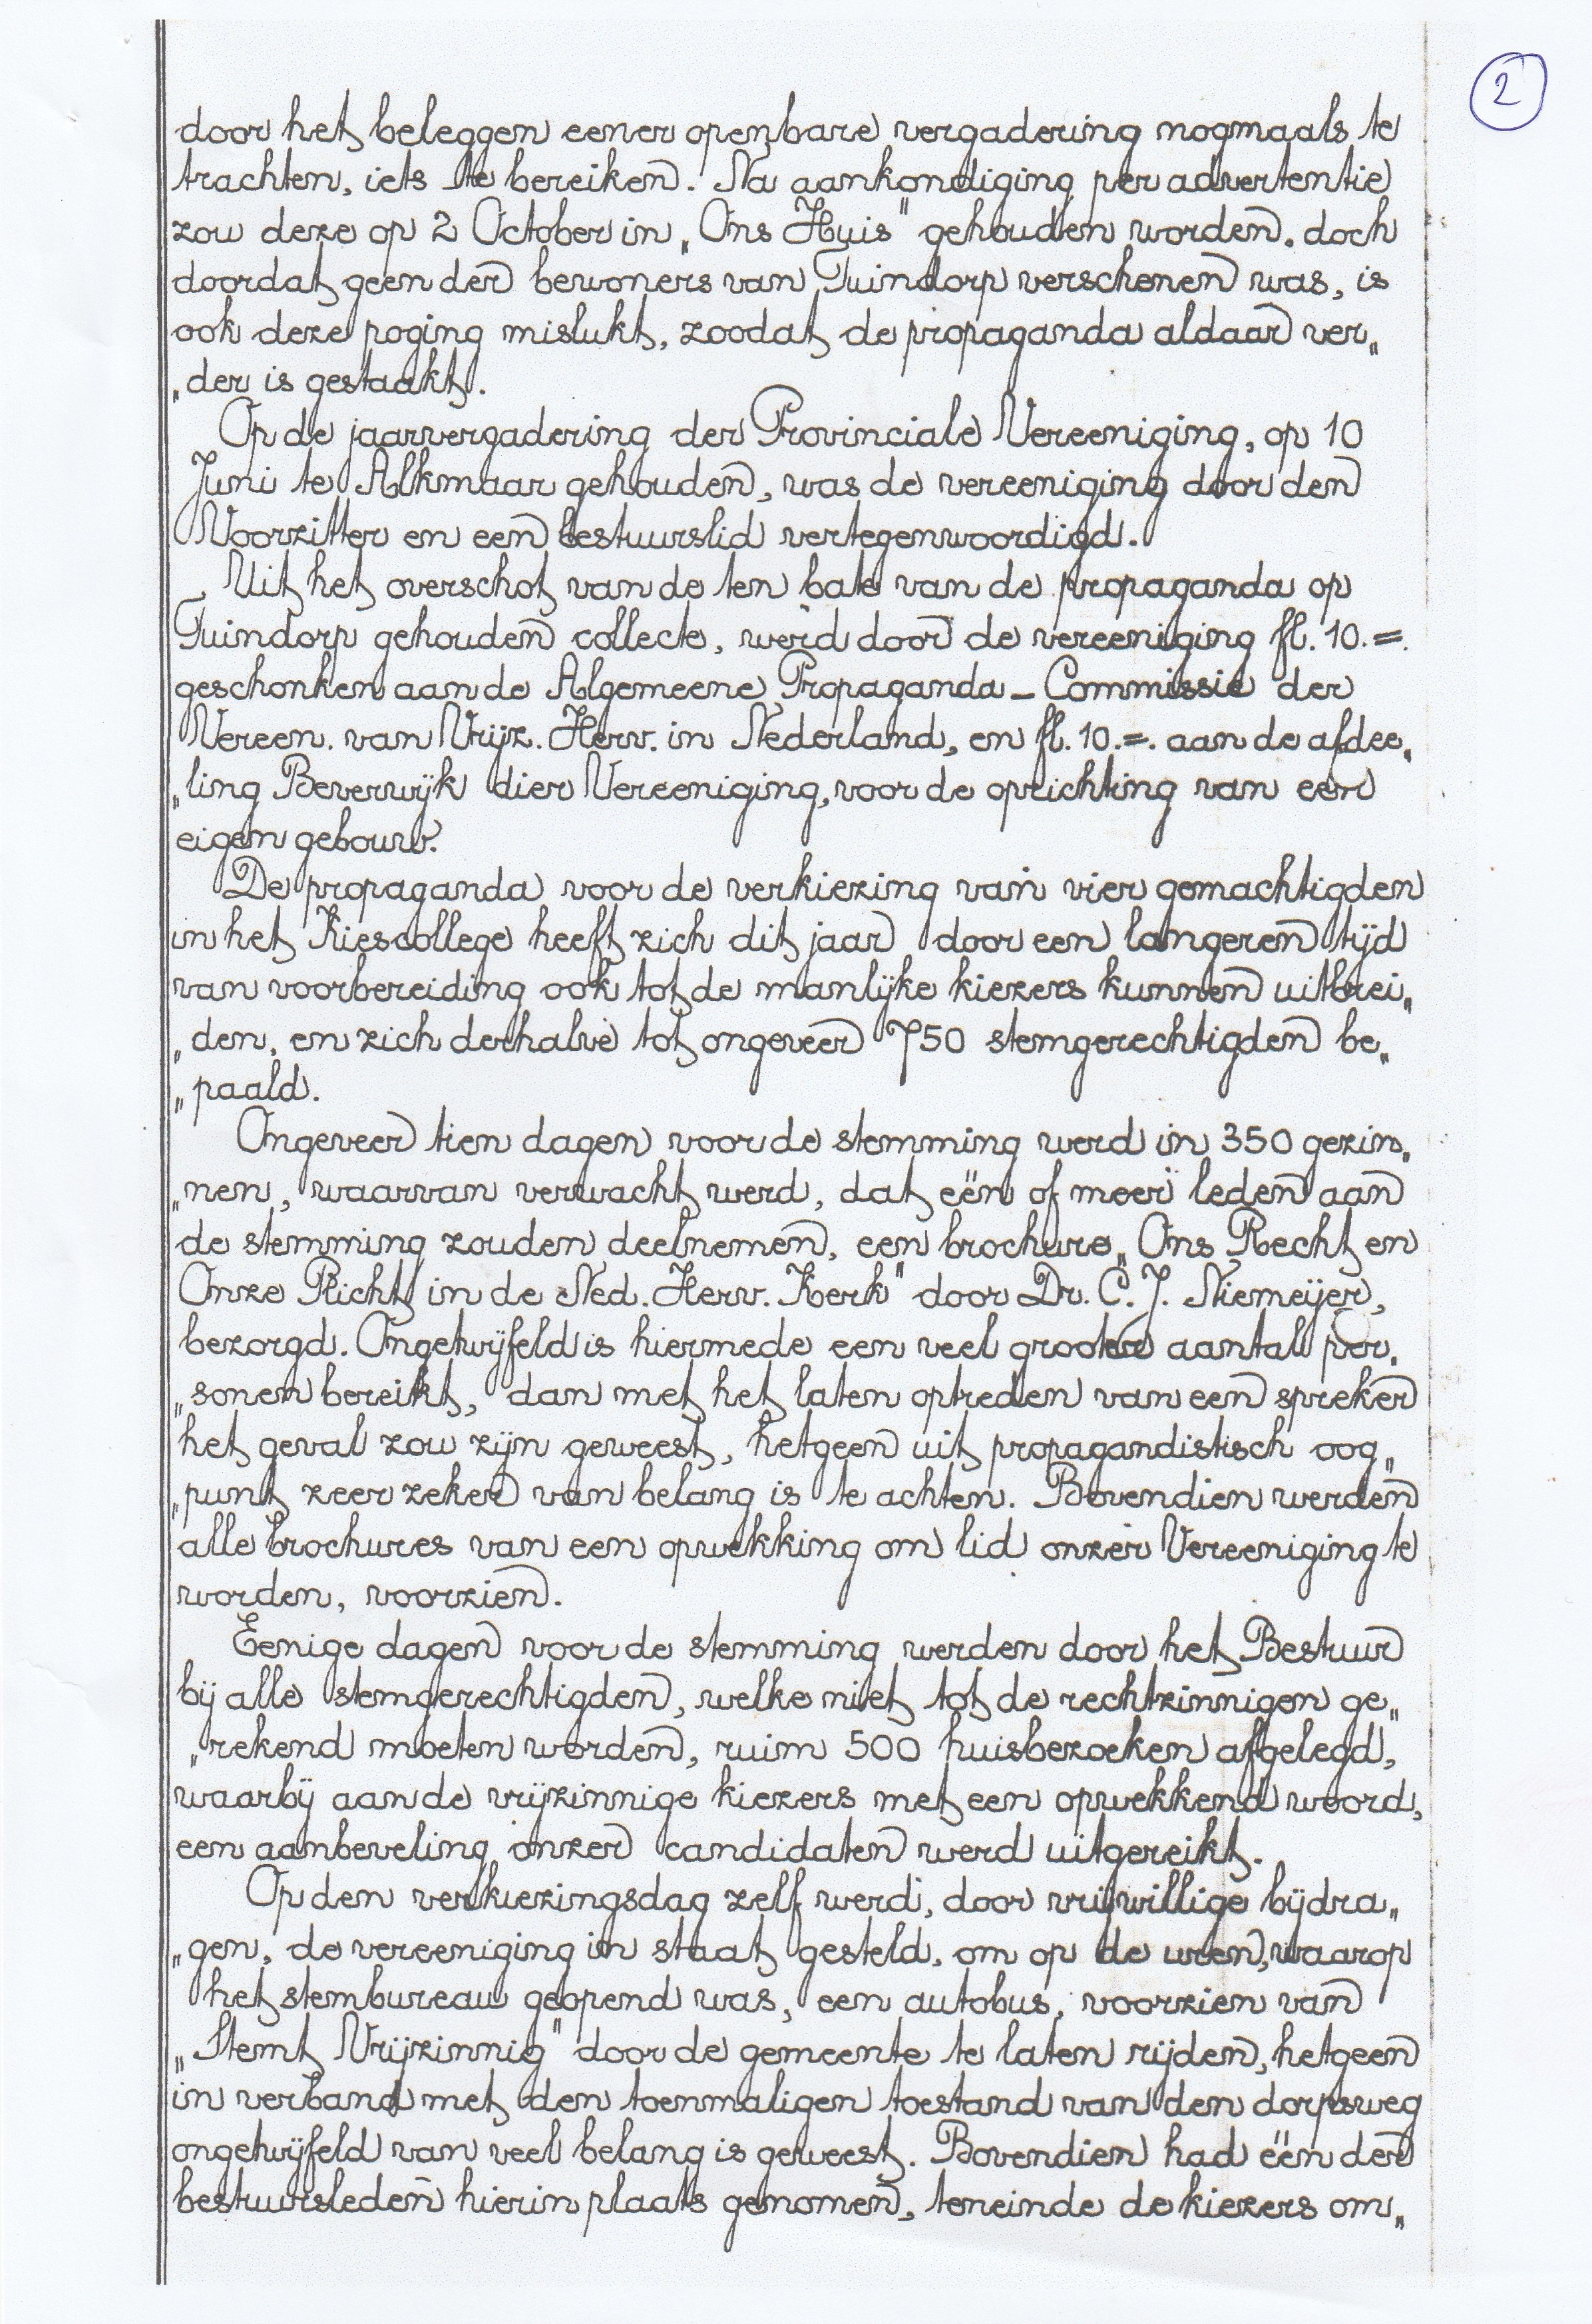 2
door het beleggen eener openbare vergadering nogmaals te
trachten, iets te bereiken. Na aankondiging per advertentie
zou deze op 2 October in „Ons Huis" gehouden worden. doch
doordat geen der bewoners van Tuindorp verschenen was, is
ook deze poging mislukt, zoodat de propaganda aldaar ver„
„der is gestaakt.
Op de jaarvergadering der Provinciale Vereeniging, op 10
Juni te Alkmaar gehouden, was de vereeniging door den
Voorzitter en een bestuurslid vertegenwoordigd.
Uit het overschot van de ten bate van de propaganda op
Tuindorp gehouden collecte, werd door de vereeniging fl. 10.=.
geschonken aan de Algemeene Propaganda - Commissie der
Vereen. van Vrijz. Herv. in Nederland, en fl. 10.=. aan de afdee„
„ling Beverwijk dier Vereeniging, voor de oprichting van een
eigen gebouw.
De propaganda voor de verkiezing van vier gemachtigden
in het Kiescollege heeft zich dit jaar door een langeren tijd
van voorbereiding ook tot de manlijke kiezers kunnen uitbrei„
„den, en zich derhalve tot ongeveer 750 stemgerechtigden be„
„paald.
Ongeveer tien dagen voor de stemming werd in 350 gezin„
„nen, waarvan verwacht werd, dat eën of meer leden aan
de stemming zouden deelnemen, een brochure „Ons Recht en
Onze Plicht in de Ned. Herv. Kerk" door Dr. C. J. Niemeijer,
bezorgd. Ongetwijfeld is hiermede een veel grooter aantal per„
„sonen bereikt, dan met het laten optreden van een spreker
het geval zou zijn geweest, hetgeen uit propagandistisch oog„
„punt zeer zeker van belang is te achten. Bovendien werden
alle brochures van een opwekking om lid onzer Vereeniging te
worden, voorzien.
Eenige dagen voor de stemming werden door het Bestuur
bij alle stemgerechtigden, welke niet tot de rechtzinnigen ge„
„rekend moeten worden, ruim 500 huisbezoeken afgelegd,
waarbij aan de vrijzinnige kiezers met een opwekkend woord,
een aanbeveling onzer candidaten werd uitgereikt.
Op den verkiezingsdag zelf werd, door vrijwillige bijdra„
„gen, de vereeniging in staat gesteld, om op de uren, waarop
het stembureau geopend was, een autobus, voorzien van
„Stemt Vrijzinnig" door de gemeente te laten rijden, hetgeen
in verband met den toenmaligen toestand van den dorpsweg
ongetwijfeld van veel belang is geweest. Bovendien had ëën der
bestuursleden hierin plaats genomen, teneinde de kiezers om„